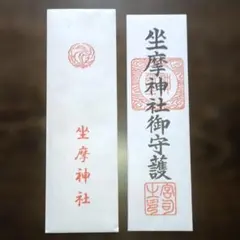 坐摩神社御守護
坐摩神社